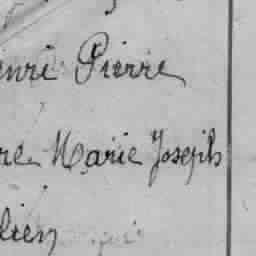 enri Pierre
re Marie Joseph
lien